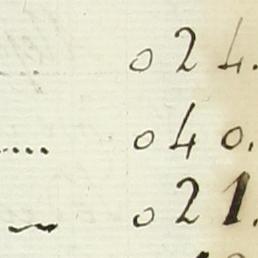 024.
.... 040.
~ 021.